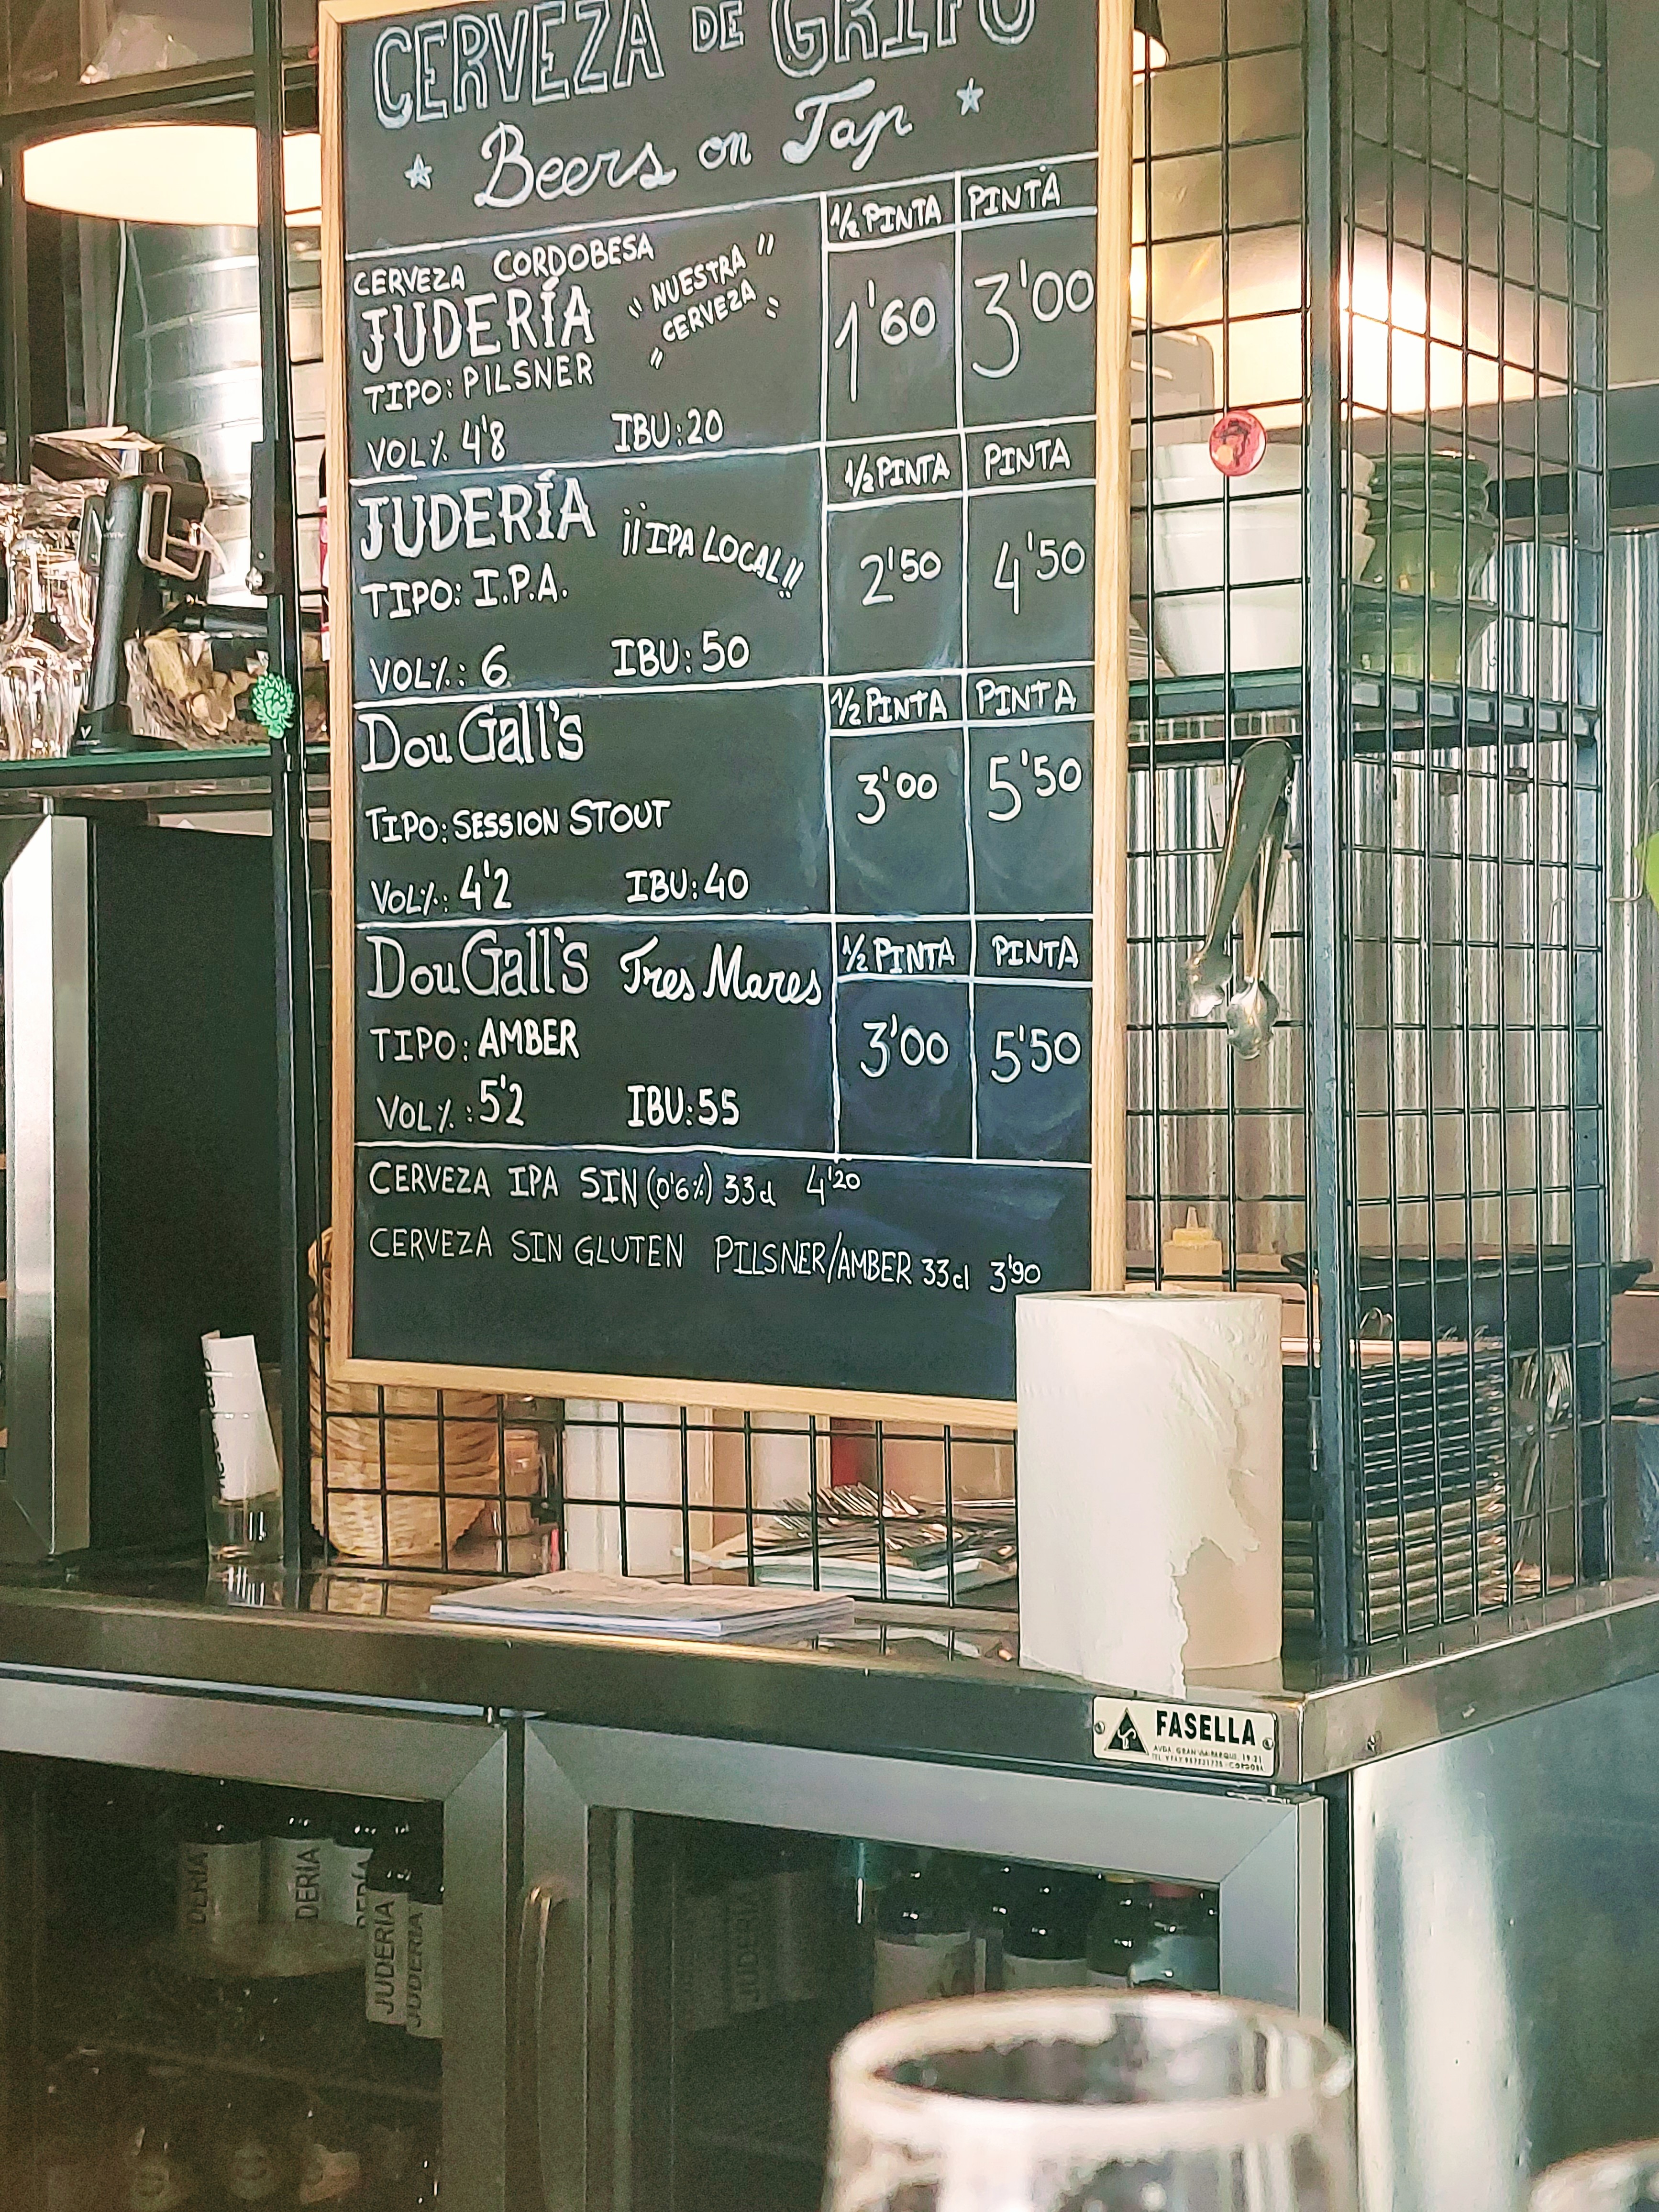 CERVEZA DE GRIFO
Beers on Tap
½ PINTA PINTA
CERVEZA CORDOBESA
JUDERÍA
"NUESTRA"
"CERVEZA"
TIPO: PILSNER
VOL% 4'8 IBU:20
1'60 3'00
½ PINTA PINTA
JUDERÍA ¡¡IPA LOCAL!!
TIPO: I.P.A.
VOL%: 6 IBU: 50
2'50 4'50
½ PINTA PINTA
DouGall's
TIPO: SESSION STOUT
VOL%: 4'2 IBU:40
3'00 5'50
½ PINTA PINTA
DouGall's Tres Mares
TIPO: AMBER
VOL%: 5'2 IBU:55
3'00 5'50
CERVEZA IPA SIN (0'6%) 33cl 4'20
CERVEZA SIN GLUTEN PILSNER/AMBER 33cl 3'90
FASELLA
JUDERIA
JUDERIA
JUDERIA